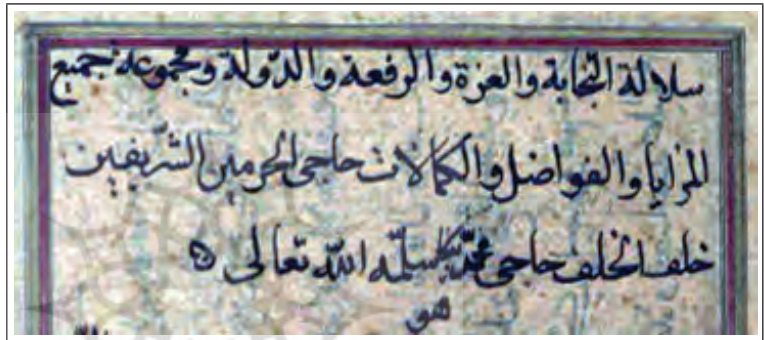 سلالة النجابة والعزة والرفعة والدولة ومجموعة جميع
المزايا والفواضل والكمالات حاجى الحرمين الشريفين
خلف الخلف حاجى محمد بيك سلمه الله تعالى
هو